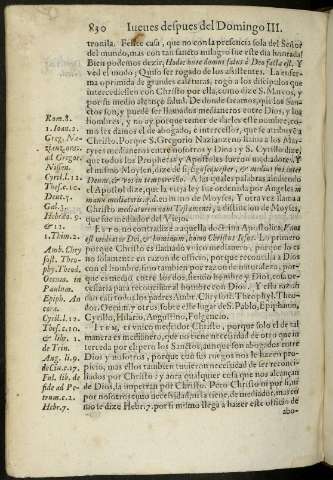 830 Iueues despues del Domingo III.
tronila. Fenece casa, que no con la presencia sola del Señor
del mundo, mas con tan famoso milagro fue este dia honrada!
Bien podemos dezir, Hodie huic domui salus à Deo facta est. Y
ved el modo; Quiso ser rogado de los assistentes. La
oprimida de grandes calenturas, rogó a los dicipulos que
intercediessen con Christo por ella, como dize S. Marcos, y
por su medio alcançó salud. De donde sacamos, que los San-
ctos son, y puede ser llamados medianeros entre Dios, y los
hombres, y no ay porque temer de darles este nombre, co-
mo les damos el de abogado, è intercessor, que se atribuye a
Christo. Porque S. Gregorio Nazianzeno llama a los Mar-
tyres medianeros entre nosotros y Dios: y S. Cyrillo dize,
que todos los Prophetas y Apostoles fueron medianeros. Y
el mismo Moysen, dize de si, Ego sequester, & medius fui inter
Deum, & vos in tempore illo. A las cuales palabras aludiendo
el Apostol dize, que la vieja ley fue ordenada por Angeles in
manu mediatoris, q̃ el tuuo Moyses. Y otra vez llama a
Christo mediatorem noui Testamenti, a distincion de Moyses,
que fue mediador del Viejo.
Esto, no contradize a aquella doctrina Apostolica, Vnus
est mediator Dei, & hominum, homo Christus Iesus. Lo qual es
assi, porque Christo es vnico mediador nuestro, porque lo es
no solamente en razon de officio, porque reconcilia a Dios
con el hombre, sino tambien por razon de naturaleza, por-
que es medio entre los dos, hombre y Dios, cosa ne-
cessaria para reconciliar al hombre con Dios. Y esta razon
dan casi todos los padres Ambr. Chrysost. Theophyl. Theo-
dor. Oecum. y otros sobre este lugar de S. Pablo, Epiphanio,
Cyrillo, Hilario, Augustino, Fulgencio.
Item, es vnico mediador Christo, porque solo el de tal
manera es medianero, que no tiene necessidad de otro que in-
terceda por el. Pero los Sanctos, aunque son abogados entre
Dios y nosotros, porque con sus ruegos nos le hazen pro-
picio, mas ellos tambien tuuieron necessidad de ser reconci-
liados por Christo: y aora cualquier cosa que nos alcançan
de Dios, la impetran por Christo. Pero Christo ni por si, ni
por nosotros tuuo necessidad, ni la tiene, de mediador, mas co-
mo se dize Hebr. 7. por si mismo llega a hazer este officio de
abo-
Rom. 8.
1. Ioan. 2.
Greg. Na-
zianz. orat.
ad Gregor.
Nissen.
Cyril. l. 12.
Thes. c. 10.
Deut. 5.
Gal. 3.
Hebræo. 9.
& 12.
1. Thim. 2.
Amb. Chry
sost. Theo-
phy. Theod.
Oecum. in
Paulum.
Epiph. An-
cora.
Cyril. l. 12.
Thes. c. 10.
& libr. 1.
de Trin.
Aug. li. 9.
de Ciu. c. 17.
Ful. lib. de
fide ad Pe-
trum. c. 2.
Hebr. 7.